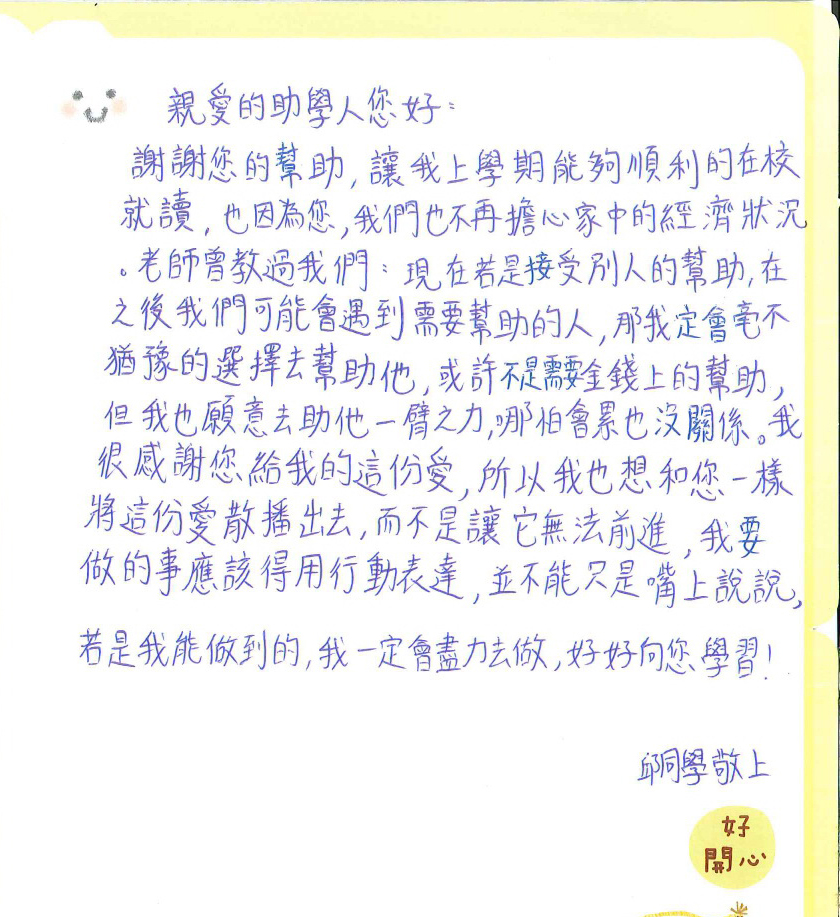 親愛的助學人您好：
謝謝您的幫助，讓我上學期能夠順利的在校
就讀，也因為您，我們也不再擔心家中的經濟狀況
。老師曾教過我們：現在若是接受別人的幫助，在
之後我們可能會遇到需要幫助的人，那我定會毫不
猶豫的選擇去幫助他，或許不是需要金錢上的幫助，
但我也願意去助他一臂之力，哪怕會累也沒關係。我
很感謝您給我的這份愛，所以我也想和您一樣
將這份愛散播出去，而不是讓它無法前進，我要
做的事應該得用行動表達，並不能只是嘴上說說，
若是我能做到的，我一定會盡力去做，好好向您學習！
邱同學敬上
好
開心